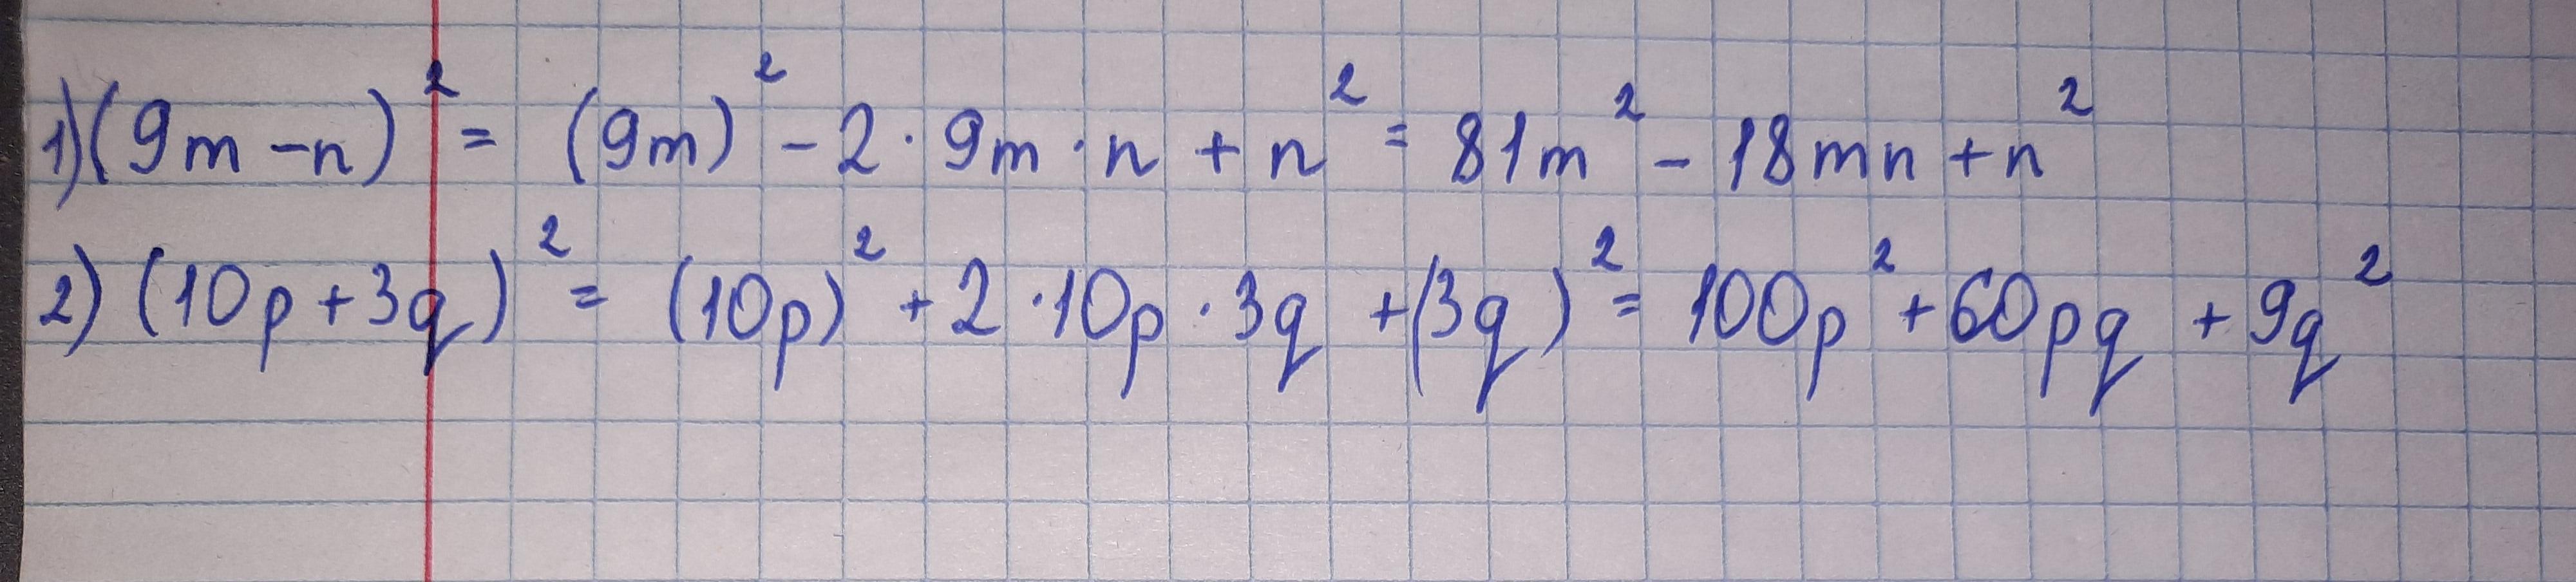 1) (9m - n)² = (9m)² - 2 · 9m · n + n² = 81m² - 18mn + n²
2) (10p + 3q)² = (10p)² + 2 · 10p · 3q + (3q)² = 100p² + 60pq + 9q²